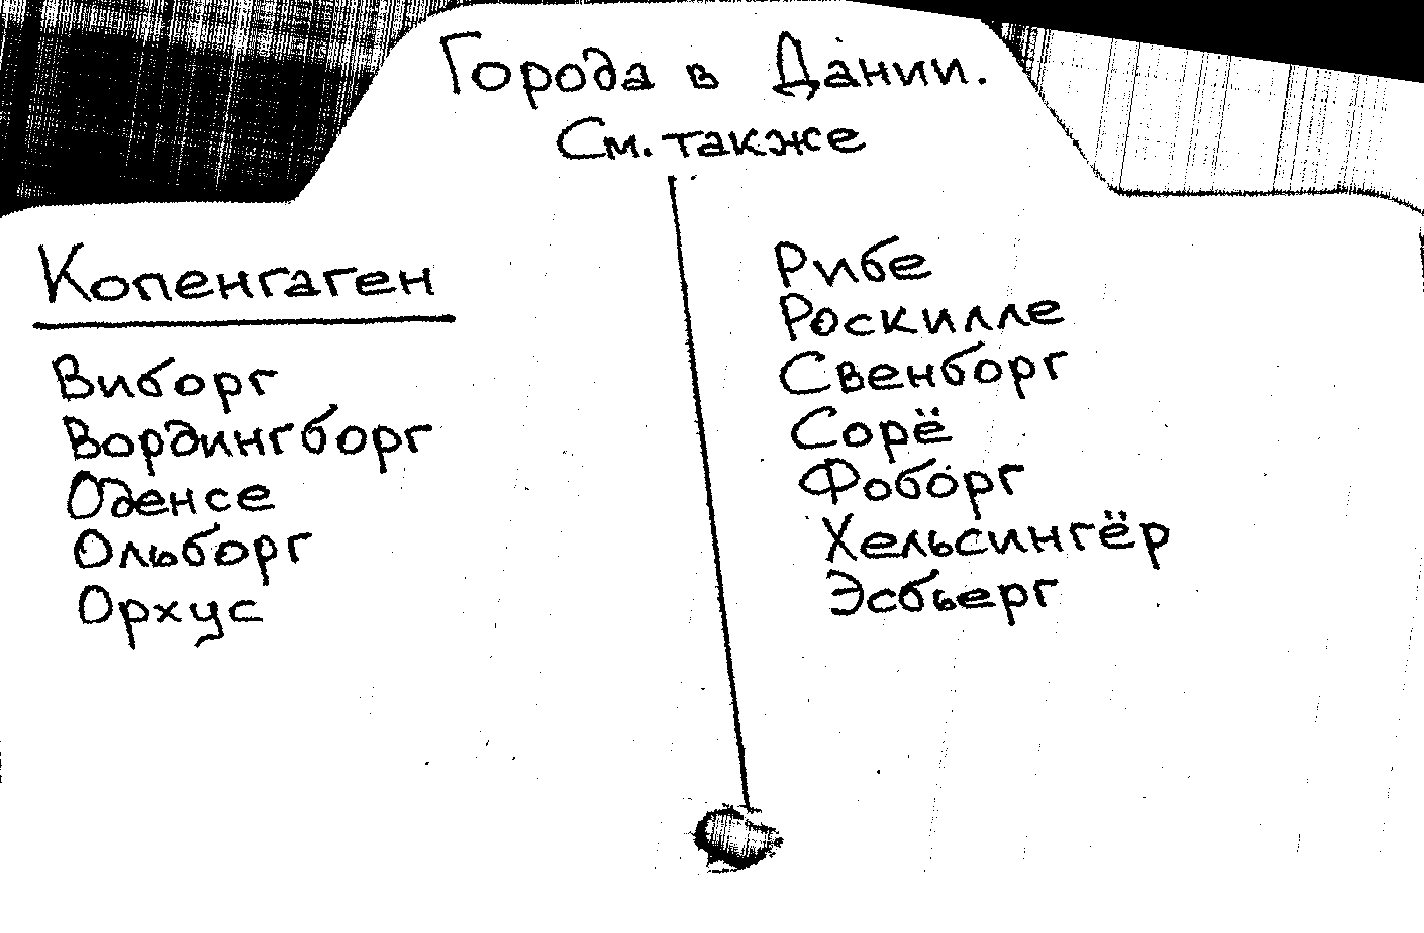 Города в Дании.
См. также
Копенгаген
Виборг
Вордингборг
Оденсе
Ольборг
Орхус
Рибе
Роскилле
Свенборг
Сорё
Фоборг
Хельсингёр
Эсбьерг